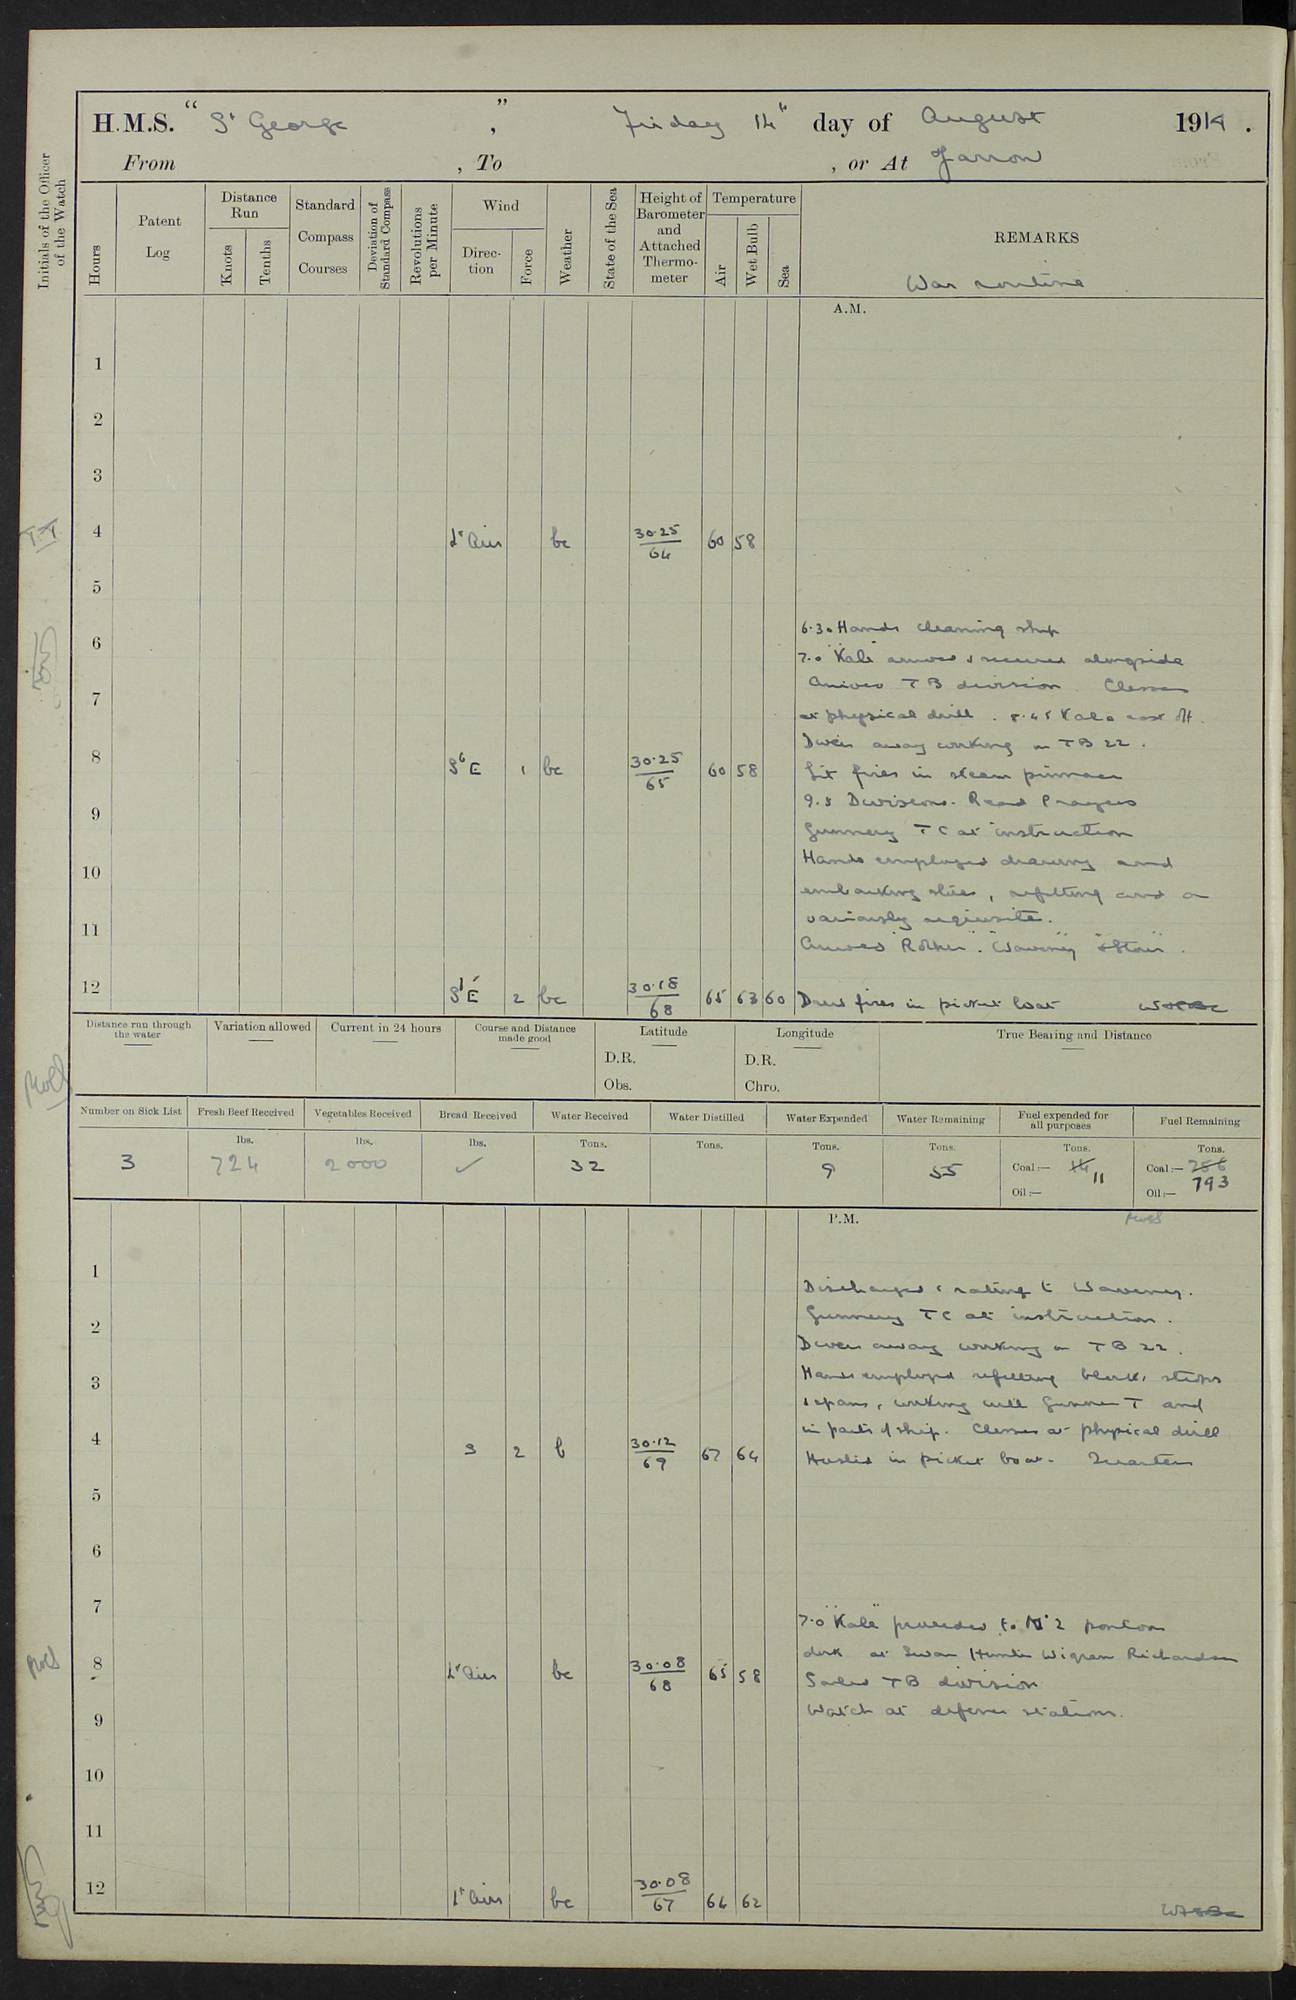 H.M.S. " St George " , Friday 14th day of August 1914 .
From , To , or At Jarrow
Initials of the Officer of the Watch
Hours
Patent Log
Distance Run
Knots
Tenths
Standard Compass Courses
Deviation of Standard Compass
Revolutions per Minute
Wind
Direction
Force
Weather
State of the Sea
Height of Barometer and Attached Thermometer
Temperature
Air
Wet Bulb
Sea
REMARKS
War routine
A.M.
1
2
3
4 Lt Airs bc 30.25/64 60 58
5
6.30 Hands cleaning ship
6
7.0 "Kale" arrived & secured alongside
Arrived TB division. Classes
7
at physical drill. 8.45 Kale cast off.
Divers away working on TB 22.
8 SbE 1 bc 30.25/65 60 58
Lit fires in steam pinnace
9.5 Divisions. Read Prayers
9
Gunnery TC at instruction
Hands employed drawing and
10
embarking stores, refitting and as
variously requisite.
11
Arrived "Rother". "Waveney" & "Stour".
12 SbE 2 bc 30.18/68 65 63 60 Drew fires in picket boat
Distance run through the water
Variation allowed
Current in 24 hours
Course and Distance made good
Latitude
D.R.
Obs.
Longitude
D.R.
Chro.
True Bearing and Distance
Number on Sick List
Fresh Beef Received
Vegetables Received
Bread Received
Water Received
Water Distilled
Water Expended
Water Remaining
Fuel expended for all purposes
Fuel Remaining
lbs. lbs. lbs. Tons. Tons. Tons. Tons. Tons. Tons.
3 724 2000 ✓ 32 9 55 Coal:— 14 11 Coal:— 786 793
Oil:— Oil:—
P.M.
1
Discharged 1 rating to Waveney.
Gunnery TC at instruction.
2
Divers away working on TB 22.
3
Hands employed refitting blocks, strops
& spans, working with Gunner T and
in parts of ship. Classes at physical drill
4 S 2 b 30.12/69 67 64
Hoisted in picket boat. Quarters
5
6
7
7.0 "Kale" proceeded to No 2 pontoon
dock at Swan Hunter Wigram Richardson
8 Lt Airs bc 30.08/68 65 58
Sailed TB division
Watch at defence stations.
9
10
11
12 Lt Airs bc 30.08/67 64 62